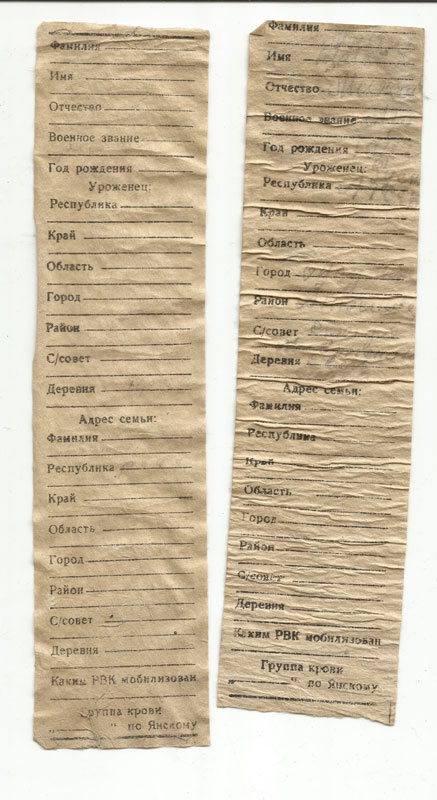 Фамилия
Имя
Отчество
Военное звание
Год рождения
Уроженец:
Республика
Край
Область
Город
Район
С/совет
Деревня
Адрес семьи:
Фамилия
Республика
Край
Область
Город
Район
С/совет
Деревня
Каким РВК мобилизован
Группа крови
„ " по Янскому
Фамилия
Имя
Отчество
Военное звание
Год рождения
Уроженец:
Республика
Край
Область
Город
Район
С/совет
Деревня
Адрес семьи:
Фамилия
Республика
Край
Область
Город
Район
С/совет
Деревня
Каким РВК мобилизован
Группа крови
„ " по Янскому